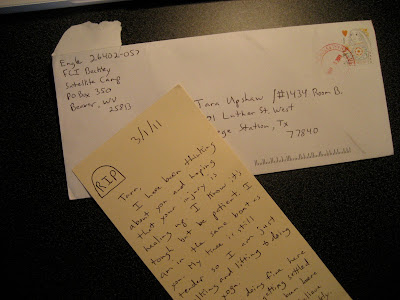 Engle 26402-057
FCI Beckley
Satellite Camp
PO Box 350
Beaver, WV
25813
Tara Upshaw /#1434 Room B.
Luther St. West
Station, Tx
77840
3/1/11
RIP
Tara,
I have been thinking
about you and hoping
that your injury is
healing up. I know it's
tough but be patient. I
am in the same boat as
you. My knee is still
tender so I am just
and lifting + doing
yoga. doing fine here
getting settled